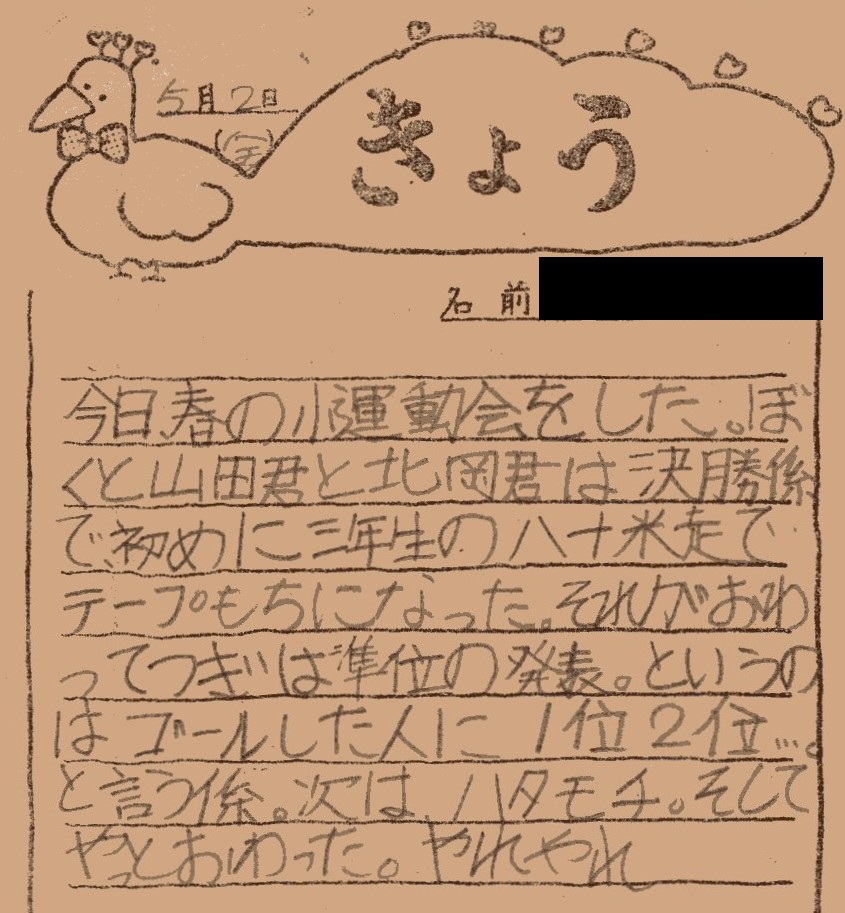 5月2日
(金)
きょう
名前
今日、春の小運動会をした。ぼ
くと山田君と北岡君は決勝係
で、初めに三年生の八十米走で
テープもちになった。それがおわ
ってつぎは準位の発表。というの
はゴールした人に1位2位…。
と言う係。次はハタモチ。そして
やっとおわった。やれやれ